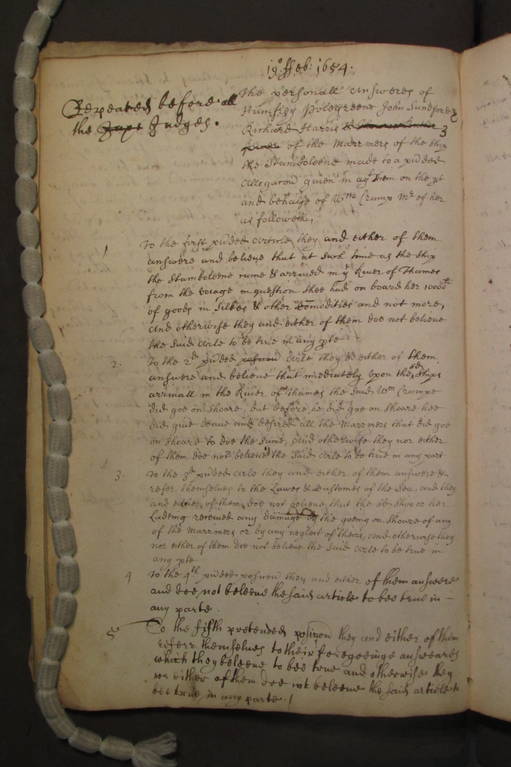 19o ffeb: 1654.
Repeated before all
the Judges.
The personall Answeres of
Humfrey Polegreene John
Richard Harris &
of the Marrmers of the ship
the Stambolene made to a pnded
Allegacon given in agt them on the pt
and behalfe of Wm Crump Mr of her
as followeth,
1 To the first pnded article they and either of them
answere and beleive that at such time as the ship
the Stambolene came & arrived in ye River of Thames
from the voiage in question shee had on board her
of goods in Silkes & other Comodities and not more,
And otherwise they and either of them doe not beleive
the said Arle to be true in any pte
2. To the 2d pnded Arle they & either of them
answere and beleive that imediately upon the ships
arrivall in the River of Thames the said Wm Crumpe
did goe on shoare, but before he did goe on shoare hee
did give leave and desired all the Marrmers that did goe
on shoare to doe the same, And otherwise they nor either
of them doe not beleive the said Arle to be true in any part
3. To the 3d pnded Arle they and either of them answere &
referr themselves to the Lawes & Customes of the Sea, and they
and either of them doe not beleive that the ship or her
Ladeing received any damage by the goeing on shoare of any
of the Marrmers or by any neglect of theirs, And otherwise they
nor either of them doe not beleive the said Arle to be true in
any pte
4 To the 4th pnded posicon they and either of them answere
and doe not beleeve the said article to bee true in
any parte.
5 To the fifth pretended posicon they and either of them
referr themselves to their foregoeinge answeares
which they beleeve to bee true and otherwise they
nor either of them doe not beleeve the said article to
bee true in any parte /